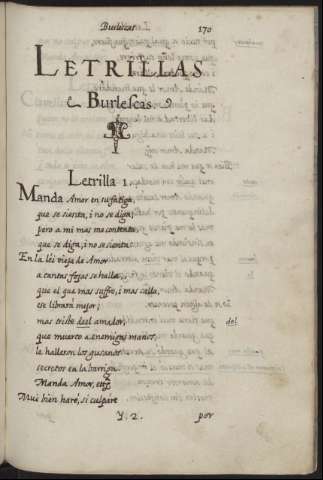 Burlescas
170
LETRILLAS
Burlescas
Letrilla 1.
Manda Amor en su fatiga,
que se sienta, i no se diga;
pero a mi mas me contenta,
que se diga, i no se sienta.
En la lei vieja de Amor
a tantas fojas se halla,
que el que mas suffre, i mas calla,
ese librarà mejor;
mas triste deel amador,
del
que muerto a enemigas manos,
le hallaron los gusanos
secretos en la barriga.
Manda Amor, etc.
Mui bien harè, si culpàre
Y. 2.
por